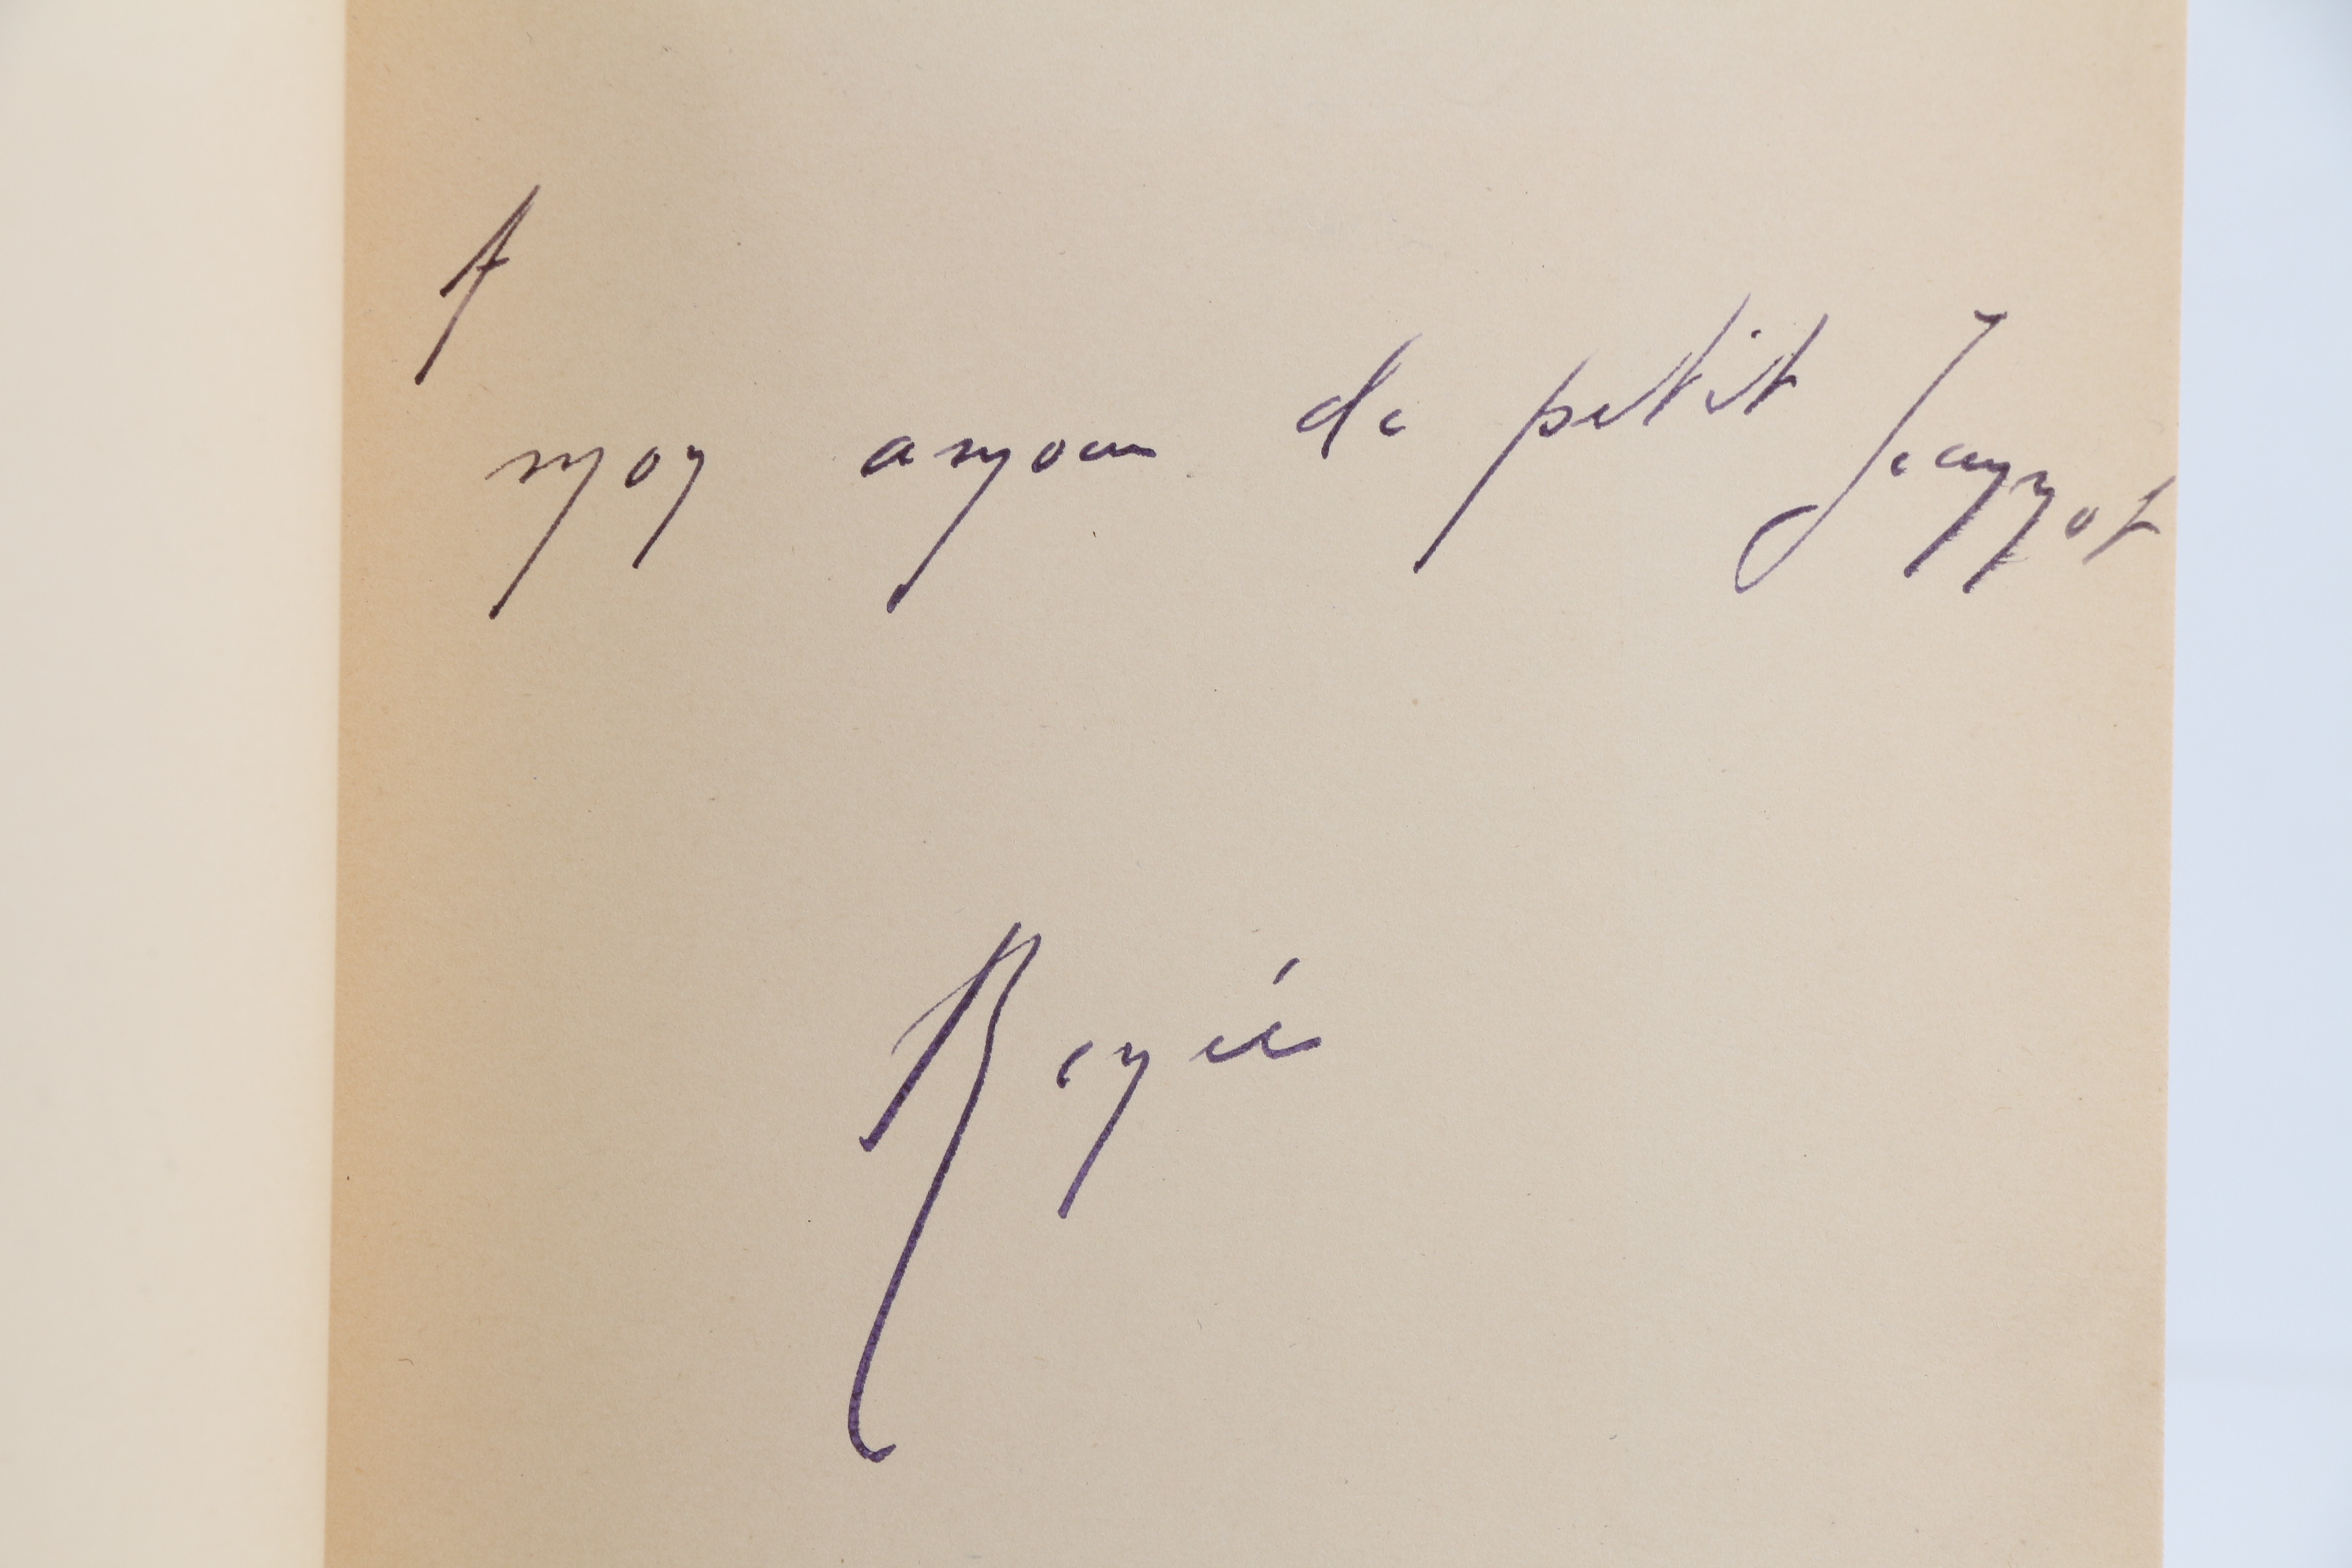 A
mon amour de petit Jeannot
Renée